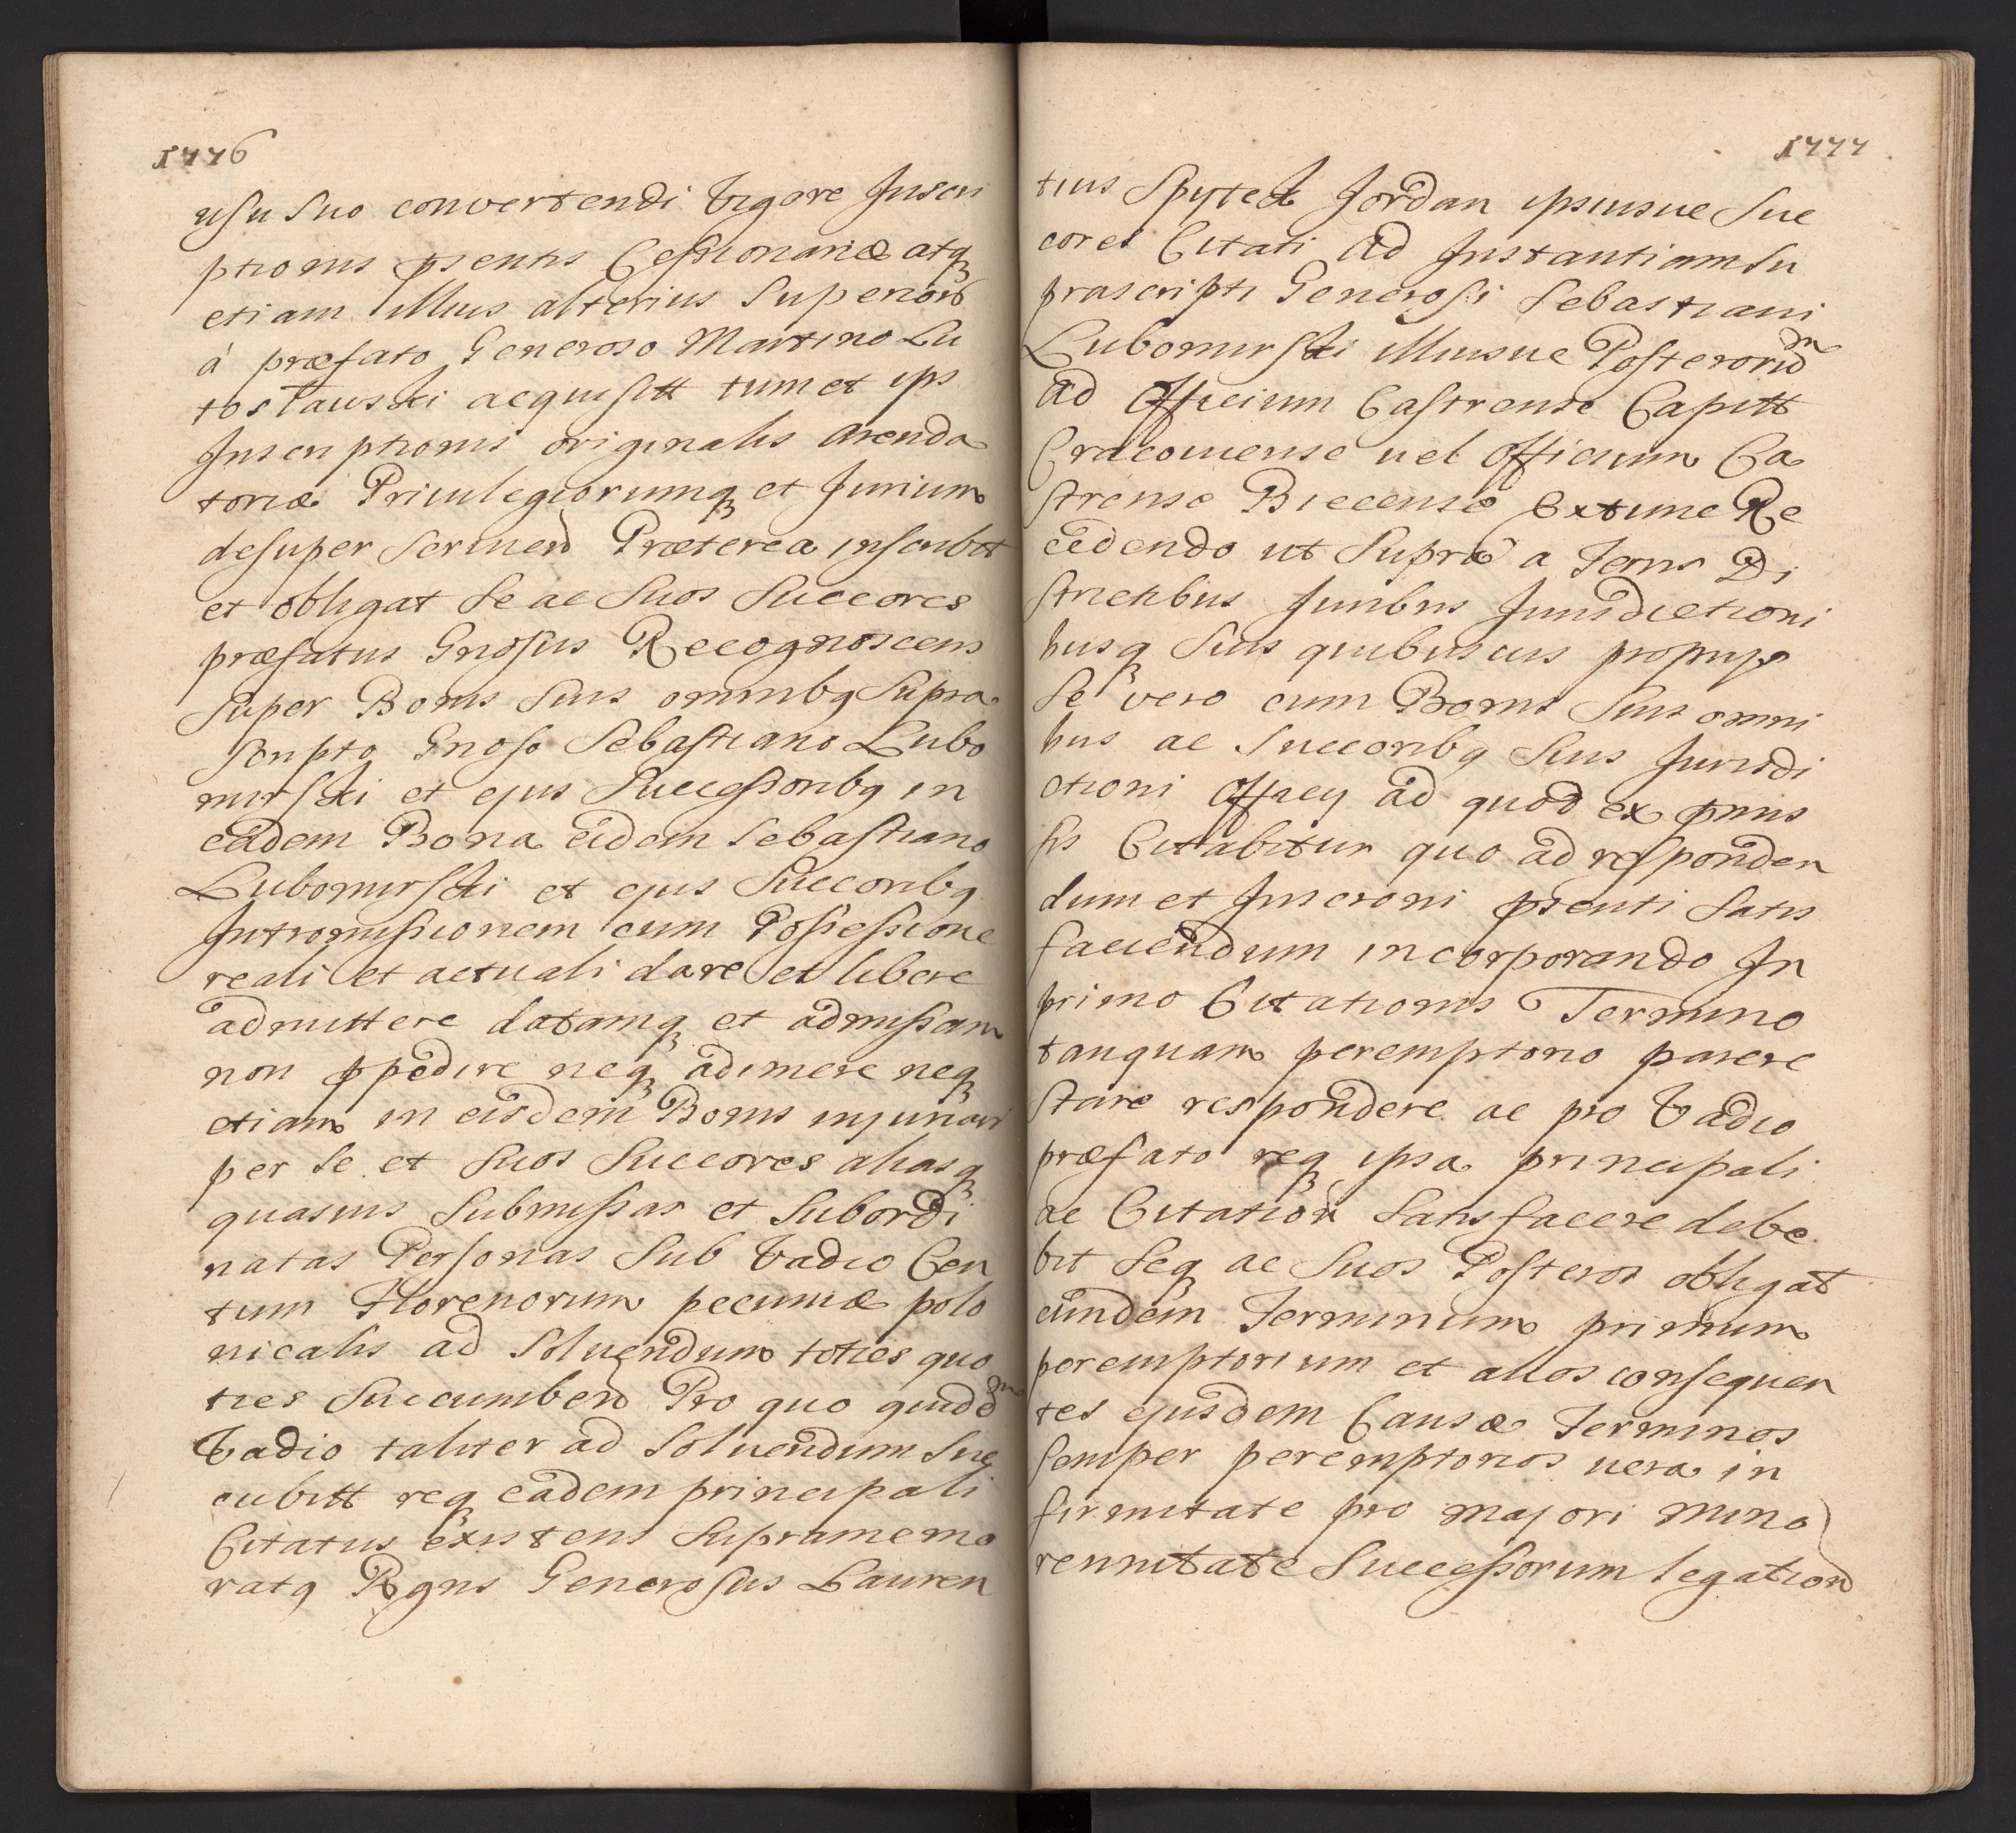 1776
usu suo convertendi Vigore Inscri
ptionis psentis Cessionariæ atq
etiam illius alterius Superiors
à præfato Generoso Martino Lu
tostawski acquisitt tum et ips
Inscriptionis originalis Arenda
toriæ Priuilegiorumq et Jurium
desuper seruien Præterea inscribtt
et obligat se ac suos succores
præfatus Gnosus Recognoscens
super Bonis suis omnibq supra
scripto Gnoso Sebastiano Lubo
mirski et ejus Successoribq in
eadem Bona eidem Sebastiano
Lubomirski et ejus succoribq
Intromissionem cum Possessione
reali et actuali dare et libere
admittere datamq et admissam
non ppedire neq adimere neq
etiam in eisdem Bonis injuriari
per se et suos succores aliasq
quasuis submissas et subordi
natas Personas sub Vadio Cen
tum Florenorum pecuniæ polo
nicalis ad soluendum toties quo
ties succumben Pro quo quidd
Vadio taliter ad soluendum suc
cubitt req eadem principali
Citatus existens supramemo
ratq Rgns Generosus Lauren
1777
tius Spytek Jordan ipsiusue suc
cores Citati ad Instantiam su
prascripti Generosi Sebastiani
Lubomirski illiusue Posterorum
ad Officium Castrense Capitt
Cracouiense uel officium Ca
strense Biecense Extunc Re
cedendo ut supra a Terris Di
strictibus Juribus Jurisdictioni
busq suis quibusuis proprys
se vero cum Bonis suis omni
bus ac succoribq suis Jurisdi
ctioni Officy ad quod ex pmis
sis Citabitur quo ad responden
dum et Inscrioni psenti satis
faciendum incorporando In
primo Citationis Termino
tanquam peremptorio parere
stare respondere ac pro Vadio
præfato req ipsa principali
ac Citation satisfacere debe
bit seq ac suos Posteros obligat
eundem Terminum primum
peremptorium et alios consequen
tes ejusdem Causæ Terminos
semper peremptorios uera in
firmitate pro majori mino
rennitate Successorum legation